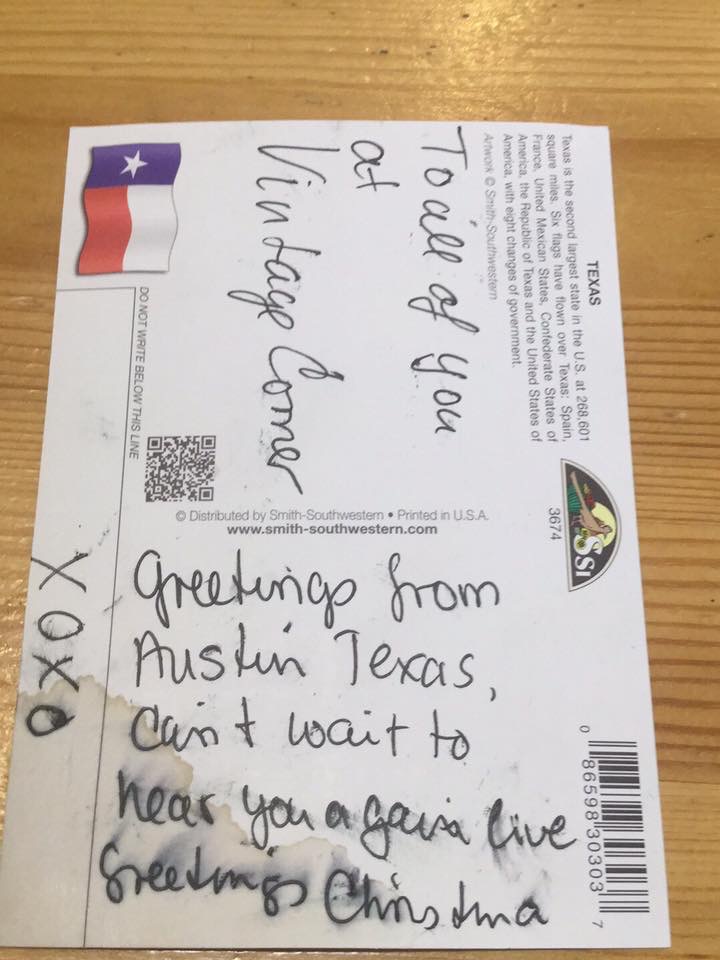 TEXAS
Texas is the second largest state in the U.S. at 268,601
square miles. Six flags have flown over Texas: Spain,
France, United Mexican States, Confederate States of
America, the Republic of Texas and the United States of
America, with eight changes of government.
Artwork © Smith-Southwestern
SSI
3674
To all of you
at
Vintage Corner
DO NOT WRITE BELOW THIS LINE
© Distributed by Smith-Southwestern • Printed in U.S.A.
www.smith-southwestern.com
Greetings from
Austin Texas,
can't wait to
hear you again live
Greetings Christina
XOXO
0 86598 30303 7